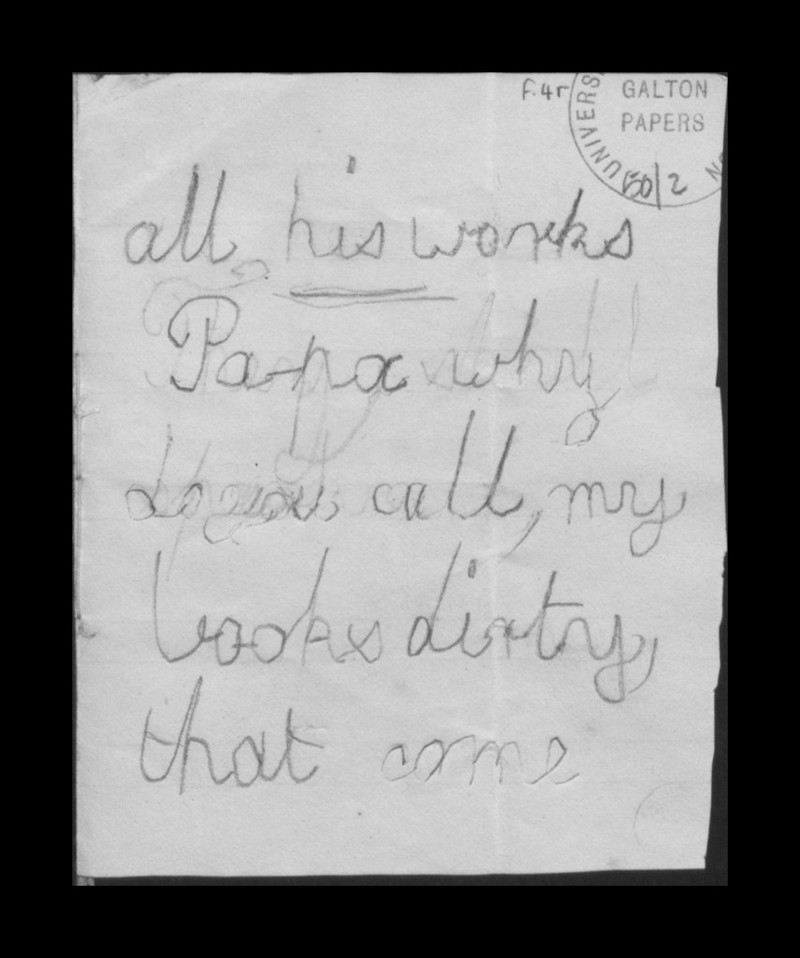 F. 4r
GALTON
PAPERS
UNIVERS
50/2
all his works
Papa why
do you call, my
books dirty,
that come